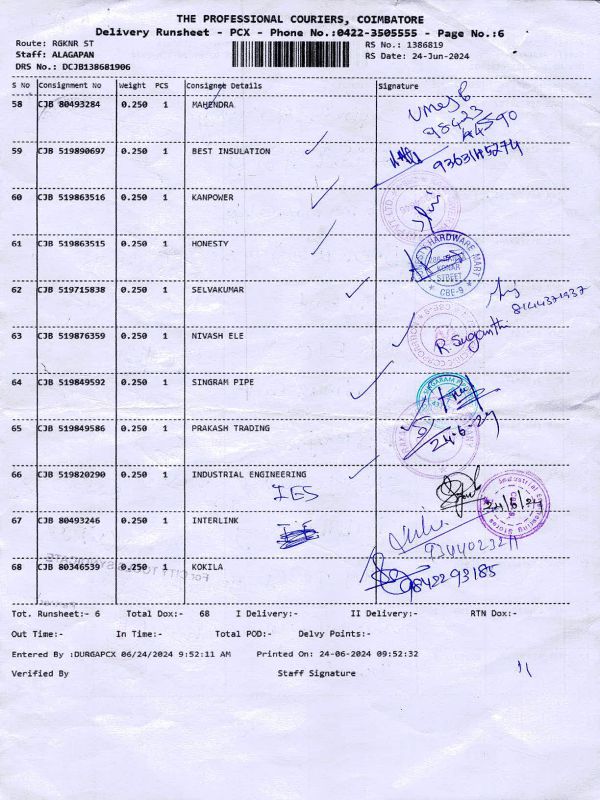 THE PROFESSIONAL COURIERS, COIMBATORE
Delivery Runsheet - PCX - Phone No.:0422-3505555 - Page No.:6
Route: RGKNR ST RS No.: 1386819
Staff: ALAGAPAN RS Date: 24-Jun-2024
DRS No.: DCJB138681906
S No Consignment No Weight PCS Consignee Details Signature
58 CJB 80493284 0.250 1 MAHENDRA
98423
44590
59 CJB 519890697 0.250 1 BEST INSULATION 9363145274
60 CJB 519863516 0.250 1 KANPOWER
61 CJB 519863515 0.250 1 HONESTY
HARDWARE MART
KONAR
STREET
CBE-9
62 CJB 519715838 0.250 1 SELVAKUMAR
8144371937
63 CJB 519876359 0.250 1 NIVASH ELE R. Suganthi
64 CJB 519849592 0.250 1 SINGRAM PIPE
65 CJB 519849586 0.250 1 PRAKASH TRADING 24.6.24
66 CJB 519820290 0.250 1 INDUSTRIAL ENGINEERING
IES
Industrial Engineering Stores
24/6/24
67 CJB 80493246 0.250 1 INTERLINK
68 CJB 80346539 0.250 1 KOKILA
9842293185
Tot. Runsheet:- 6 Total Dox:- 68 I Delivery:- II Delivery:- RTN Dox:-
Out Time:- In Time:- Total POD:- Delvy Points:-
Entered By :DURGAPCX 06/24/2024 9:52:11 AM Printed On: 24-06-2024 09:52:32
Verified By Staff Signature